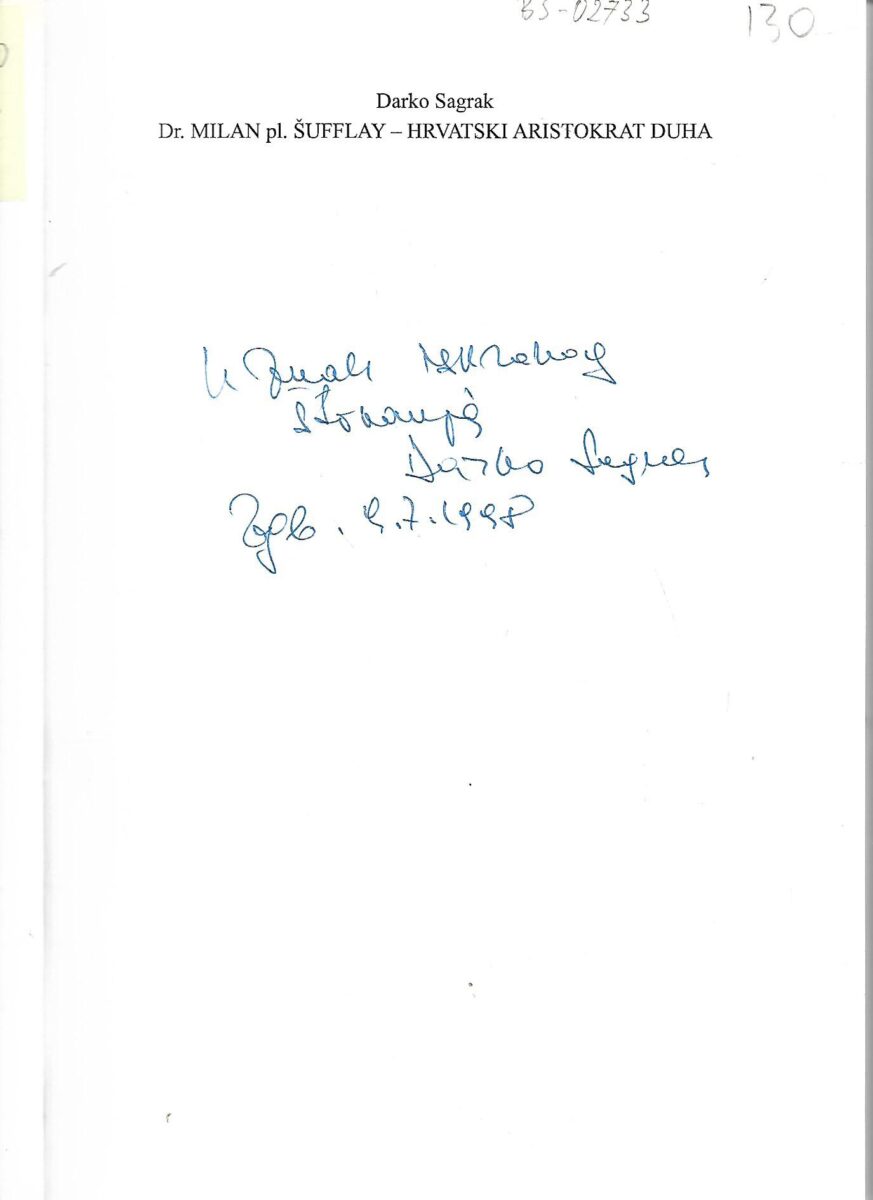 BS-02733 130
Darko Sagrak
Dr. MILAN pl. ŠUFFLAY – HRVATSKI ARISTOKRAT DUHA
U znak iskrenog
štovanja
Darko Sagrak
Zgb. 9.7.1998